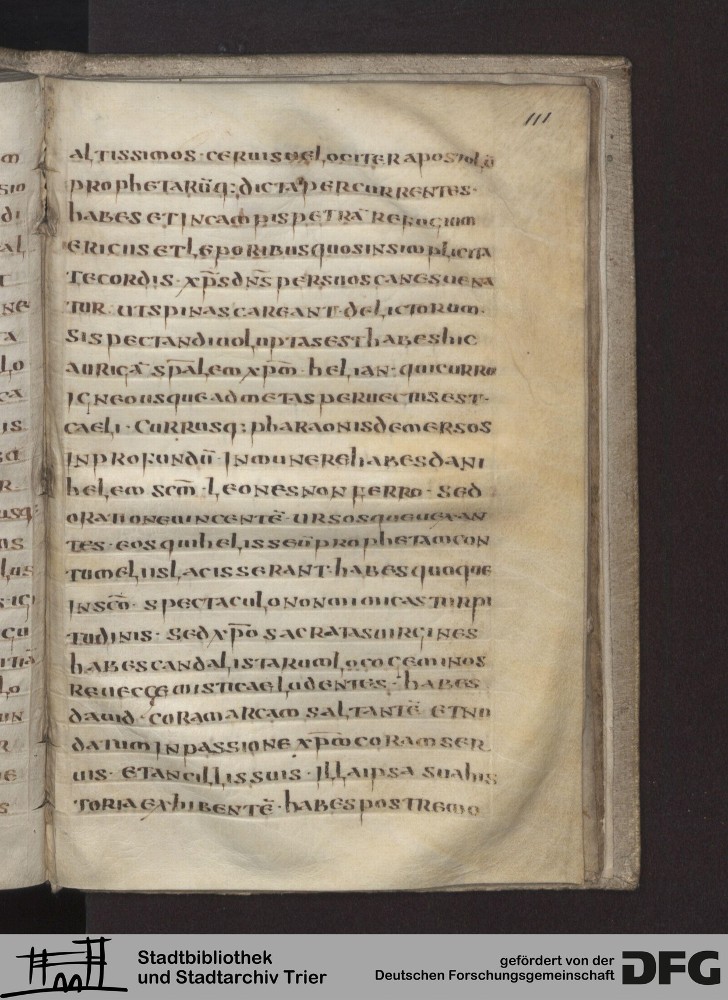 111
altissimos · ceruis uelociter apostolōꝝ
prophetarūq: dicta percurrentes ·
habes et in campis petrā refogium
ericiis et leporibus quos in simplicita
te cordis · xp̄s dn̄s per suos canes uena
tur · ut spinas careant delictorum ·
si spectandi uoluptas est habes hic
aurigā sp̄alem xp̄m helian · qui curru
igneo usque ad metas peruectus est ·
caeli · currusq: pharaonis demersos
in profundū · in munere habes dani
helem sc̄m · leones non ferro · sed
oratione uincentē · ursos
tes · eos qui helisseū prophetam con
tumeliis lacisserant · habes quoque
in sc̄o · spectaculo non mimicas turpi
tudinis · sed xp̄o sacratas uirgines
habes candalistarum loco geminos
ludentes · habes
dauid · coram arcam saltantē et nu
datum in passione xp̄m coram ser
uis · et ancillis suis · illa ipsa sua his
toria exhibentē · habes postremo
Stadtbibliothek
und Stadtarchiv Trier
gefördert von der
Deutschen Forschungsgemeinschaft
DFG